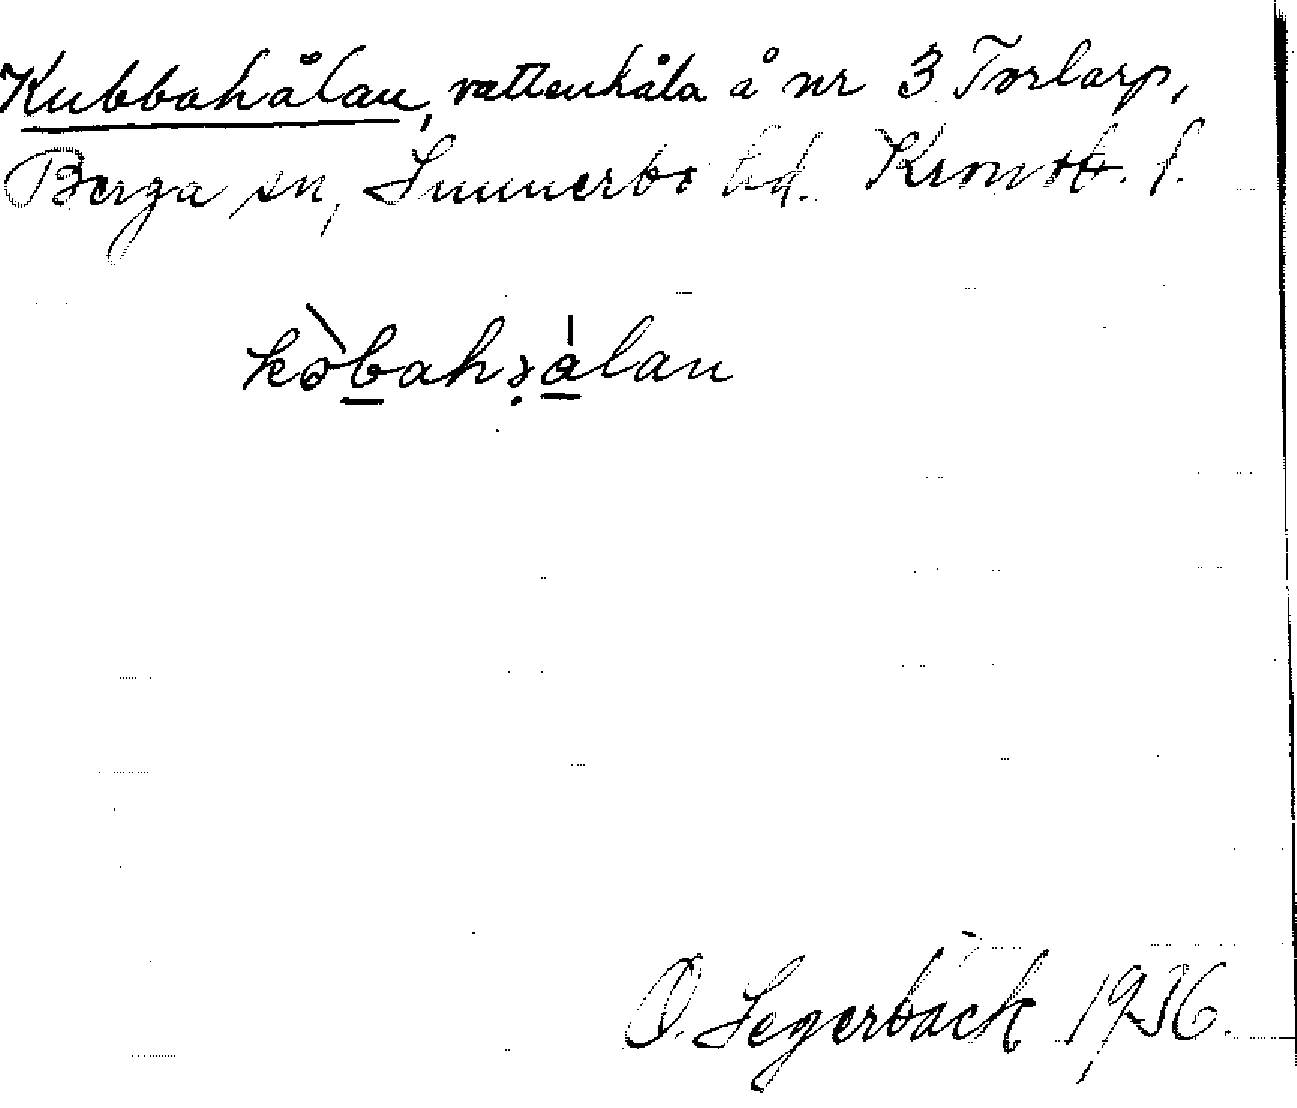 Kubbahålan, vattenhåla å nr 3 Torlarp,
Berga sn, Sunnerbo hd. Kronob. l.
kòbahålan
O. Segerbäck 1936.